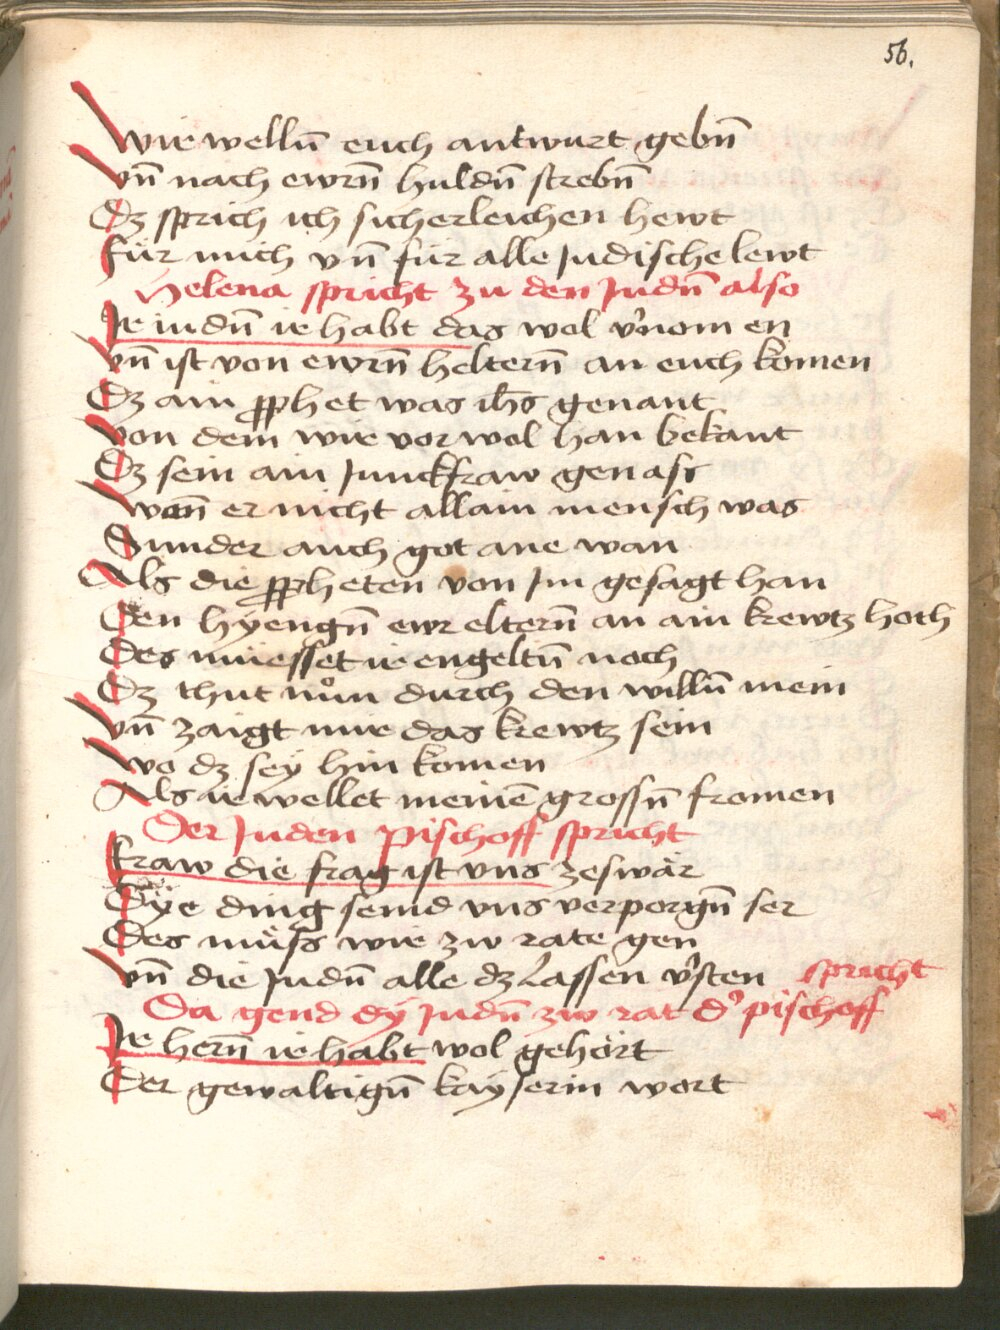 56.
Wie welln̄ euch antwurt gebn̄
vn̄ nach ewrn̄ huldn̄ strebn̄
Dz sprich ich sicherleichen hewt
für mich vn̄ für alle Judische lewt
Helena spricht zu den Judn̄ also
Je iudn̄ ie habt das wol v̓nomen
vn̄ ist von ewrn̄ heltern̄ an euch komen
Dz ain ꝓphet was ih̄s genant
von dem wir vor wol han bekant
Dz sein ain Junckfraw genass
wan̄ er nicht allain mensch was
Sunder auch got ane wan
Als die ꝓpheten von Im gesagt han
Den hyengn̄ ewr eltern̄ an ain krewtz hoch
Des muesset ie engeltn̄ noch
Dz thut nůn durch den willn̄ mein
vn̄ zaigt mir das krewtz sein
wo dz seÿ hin komen
Als ie wellet meinē grossn̄ fromen
Der Juden pischoff spricht
fraw die frag ist vns zeswär
Dÿe ding seind vns verporgn̄ ser
Des müss wir zw rate gen
vn̄ die Judn̄ alle dz lassen v̓sten
spricht
Da gend dÿ Judn̄ zw rat d̓ pischoff
Je hern̄ ie habt wol gehört
Der gewaltign̄ kayserin wort